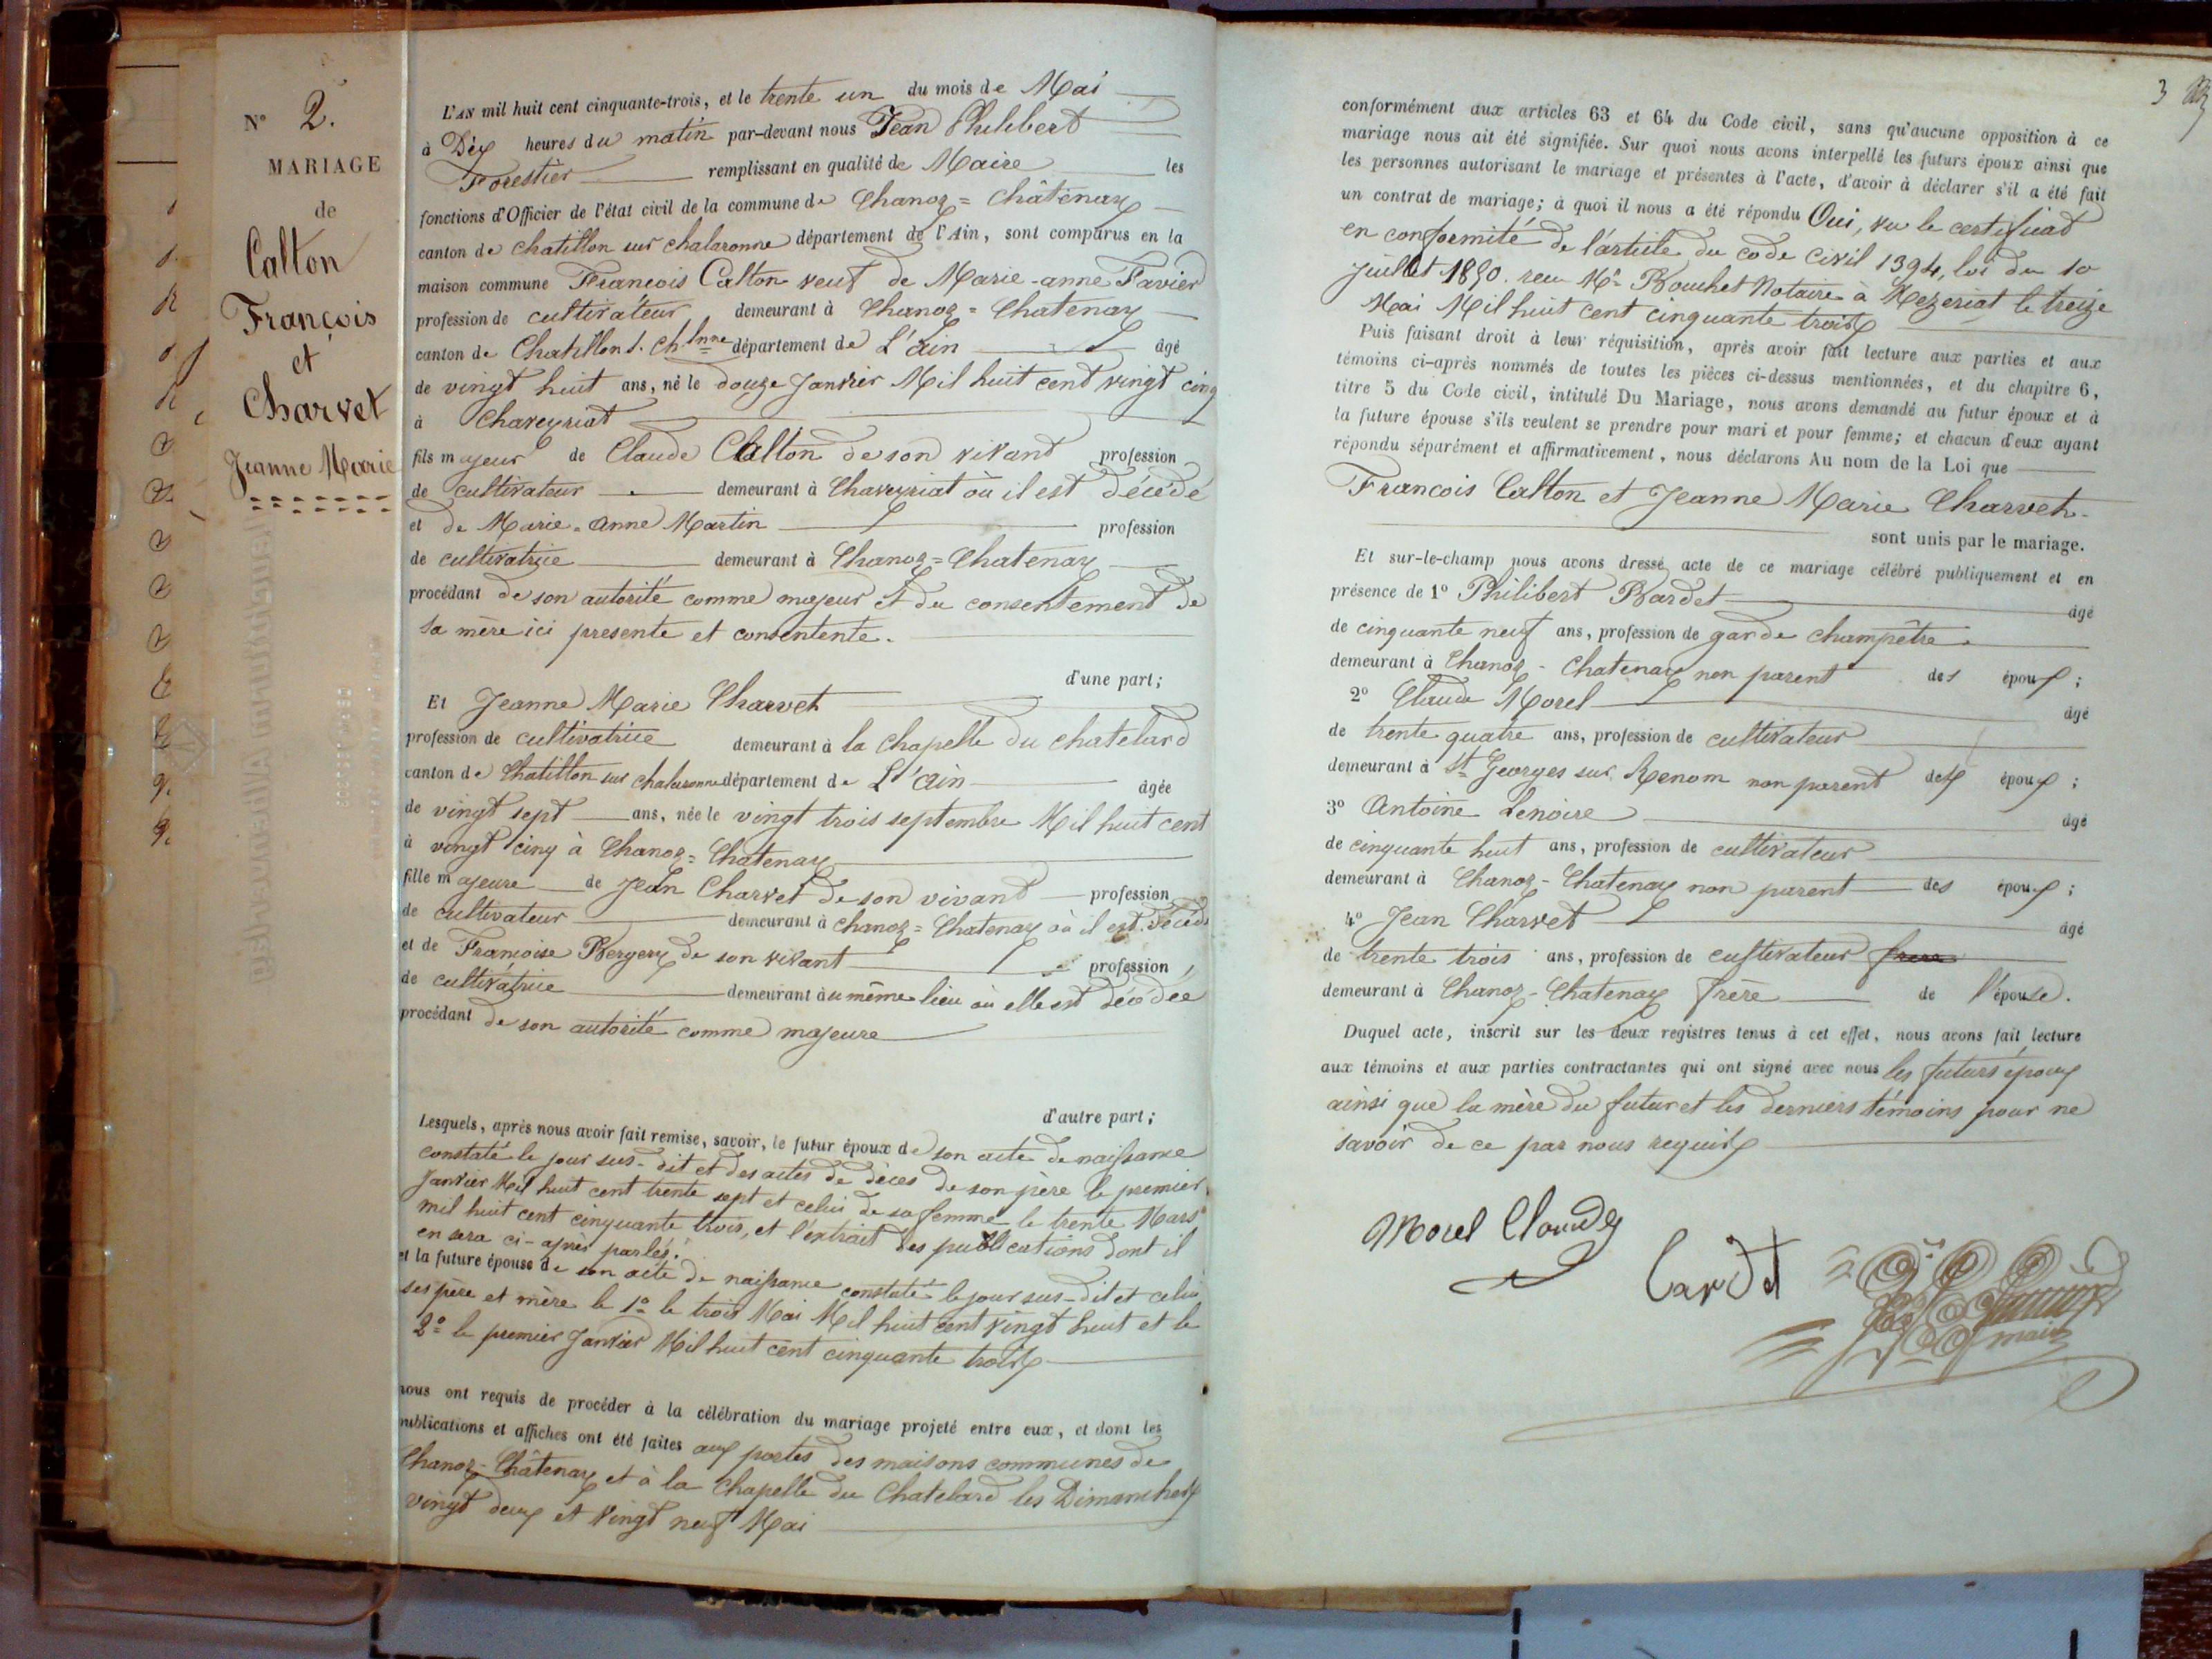 N° 2.
MARIAGE
de
Calton
François
et
Charvet
Jeanne Marie
L'AN mil huit cent cinquante-trois, et le trente un du mois de Mai
à Dix heures du matin par-devant nous Jean Philibert
Forestier remplissant en qualité de Maire les
fonctions d'Officier de l'état civil de la commune de Chanoz = Châtenay
canton de chatillon sur chalaronne département de l'Ain, sont comparus en la
maison commune Francois Calton veuf de Marie-anne Favier
profession de cultivateur demeurant à Chanoz = Chatenay
canton de Chatillon s. Ch.lnne département de L'ain âgé
de vingt huit ans, né le douze Janvier Mil huit cent vingt cinq
à Chaveyriat
fils majeur de Claude Calton de son vivant profession
de cultivateur demeurant à Chaveyriat où il est décédé
et de Marie-Anne Martin profession
de cultivatrice demeurant à Chanoz = Chatenay
procédant de son autorité comme majeur et du consentement de
sa mère ici presente et consentente.
d'une part;
Et Jeanne Marie Charvet
profession de cultivatrice demeurant à la Chapelle du chatelard
canton de Chatillon sur chalaronne département de L'ain âgée
de vingt sept ans, née le vingt trois septembre Mil huit cent
à vingt cinq à Chanoz = Chatenay
fille majeure de Jean Charvet de son vivant profession
de cultivateur demeurant à Chanoz = Chatenay où il est décédé
et de Françoise Bergery de son vivant profession
de cultivatrice demeurant au même lieu où elle est décédée
procédant de son autorité comme majeure
d'autre part;
Lesquels, après nous avoir fait remise, savoir, le futur époux de son acte de naissance
constaté le jour sus-dit et des actes de décès de son père le premier
Janvier Mil huit cent trente sept et celui de sa femme le trente Mars
mil huit cent cinquante trois, et l'extrait des publications dont il
en sera ci-après parlés.
et la future épouse de son acte de naissance constaté le jour sus-dit et celui
ses père et mère le 1° le trois Mai Mil huit cent vingt huit et le
2° le premier Janvier Mil huit cent cinquante trois
nous ont requis de procéder à la célébration du mariage projeté entre eux, et dont les
publications et affiches ont été faites aux portes des maisons communes de
Chanoz-Châtenay et à la Chapelle du Chatelard les Dimanches
vingt deux et vingt neuf Mai
3
conformément aux articles 63 et 64 du Code civil, sans qu'aucune opposition à ce
mariage nous ait été signifiée. Sur quoi nous avons interpellé les futurs époux ainsi que
les personnes autorisant le mariage et présentes à l'acte, d'avoir à déclarer s'il a été fait
un contrat de mariage; à quoi il nous a été répondu Oui, vu le certificat
en conformité de l'article du code civil 1394, loi du 10
Juillet 1850. reçu Me Bouchet Notaire à Mezeriat le treize
Mai Mil huit cent cinquante trois
Puis faisant droit à leur réquisition, après avoir fait lecture aux parties et aux
témoins ci-après nommés de toutes les pièces ci-dessus mentionnées, et du chapitre 6,
titre 5 du Code civil, intitulé Du Mariage, nous avons demandé au futur époux et à
la future épouse s'ils veulent se prendre pour mari et pour femme; et chacun d'eux ayant
répondu séparément et affirmativement, nous déclarons Au nom de la Loi que
Francois Calton et Jeanne Marie Charvet.
sont unis par le mariage.
Et sur-le-champ nous avons dressé acte de ce mariage célébré publiquement et en
présence de 1° Philibert Bardet âgé
de cinquante neuf ans, profession de garde champêtre
demeurant à Chanoz-Chatenay non parent des époux;
2° Claude Morel âgé
de trente quatre ans, profession de cultivateur
demeurant à St Georges sur Renom non parent des époux;
3° Antoine Lenoire âgé
de cinquante huit ans, profession de cultivateur
demeurant à Chanoz-Chatenay non parent des époux;
4° Jean Charvet âgé
de trente trois ans, profession de cultivateur frere
demeurant à Chanoz-Chatenay frère de l'épouse.
Duquel acte, inscrit sur les deux registres tenus à cet effet, nous avons fait lecture
aux témoins et aux parties contractantes qui ont signé avec nous les futurs époux
ainsi que la mère du futur et les derniers témoins pour ne
savoir de ce par nous requis
Morel Claude
maire